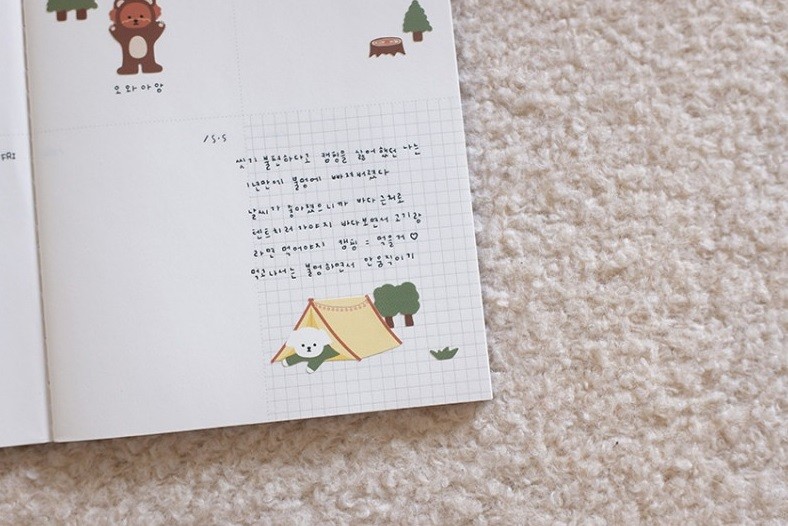 오와아앙
FRI
15.5
씻기 불편하다고 캠핑을 싫어했던 나는
1년만에 불멍에 빠져버렸다
날씨가 좋아졌으니까 바다 근처로
텐트치러 가야지 바다보면서 고기랑
라면 먹어야지 캠핑 = 먹을거 ♡
먹고나서는 불멍하면서 안움직이기